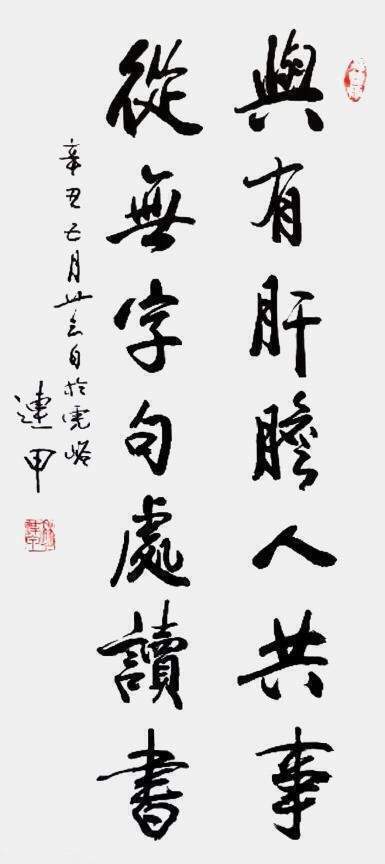 與有肝膽人共事
從無字句處讀書
辛丑七月廿六日於霓裳
連甲